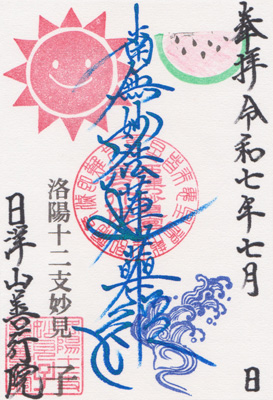 奉拝 令和七年七月 日
南無妙法蓮華経
洛陽十二支妙見 子
日洋山善行院